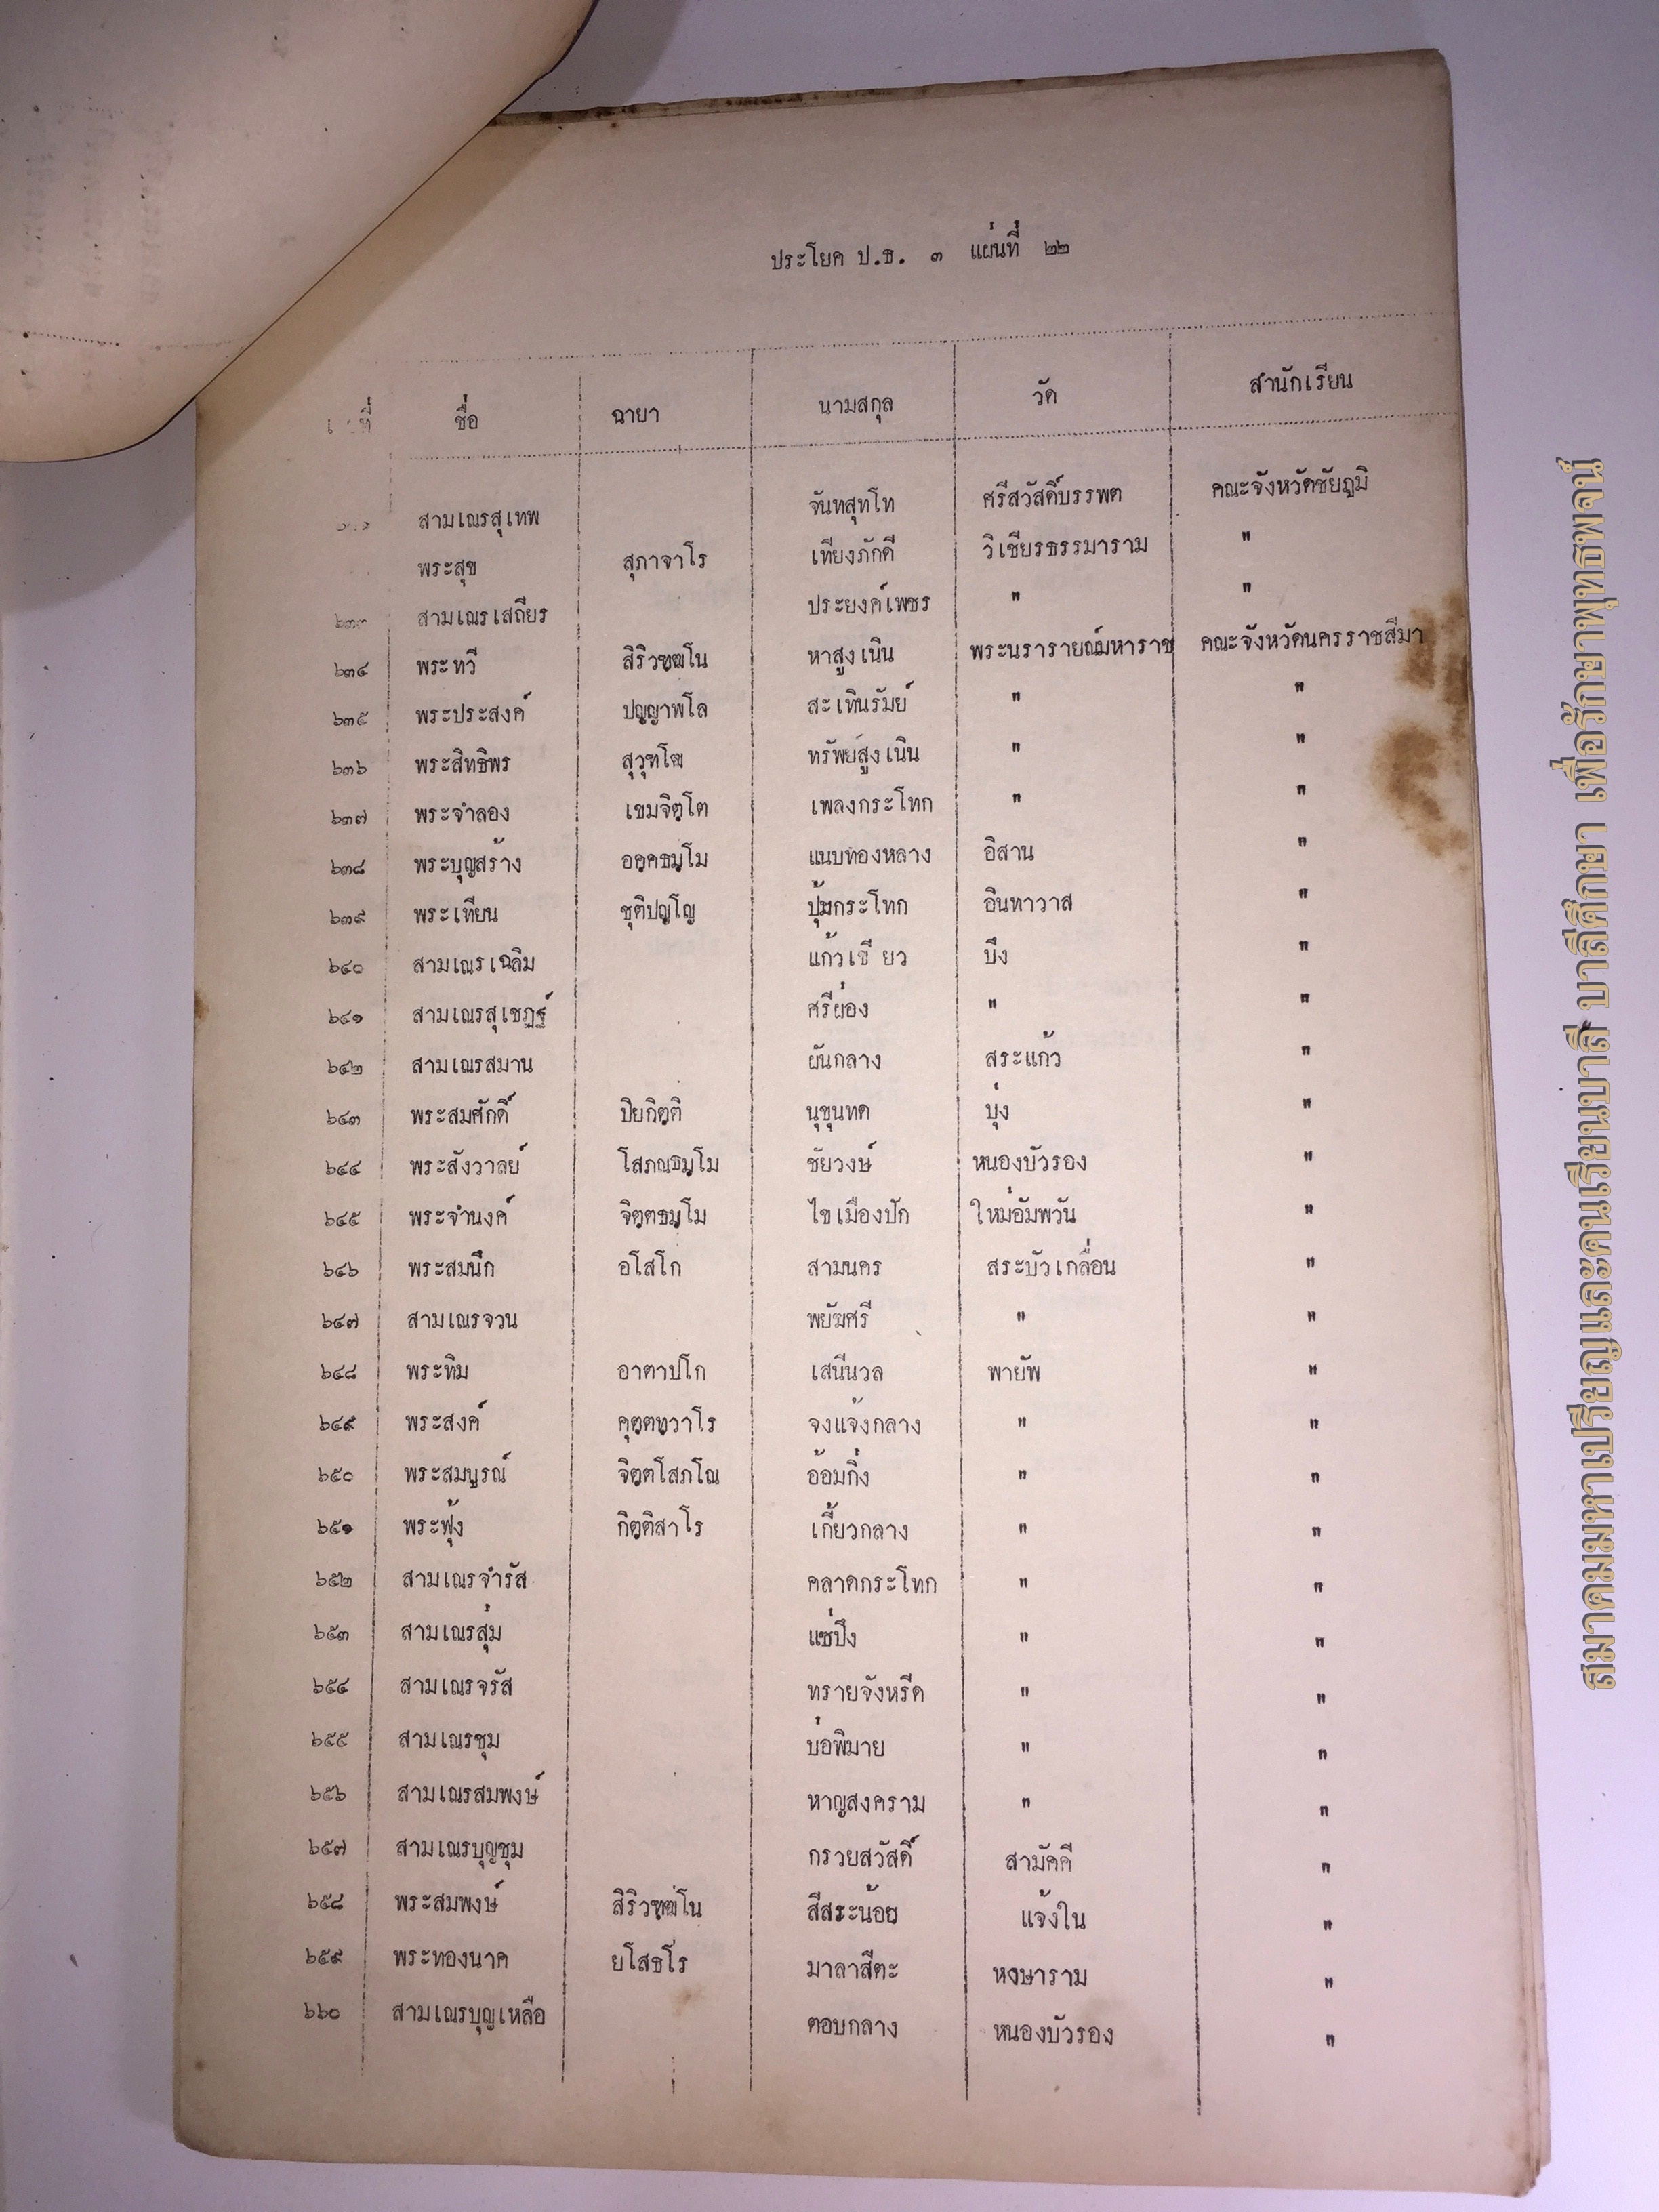 ประโยค ป.ธ. ๓ แผ่นที่ ๒๒
ที่ ชื่อ ฉายา นามสกุล วัด สำนักเรียน
สามเณรสุเทพ จันทสุทโท ศรีสวัสดิ์บรรพต คณะจังหวัดชัยภูมิ
พระสุข สุภาจาโร เทียงภักดี วิเชียรธรรมาราม "
๖๓๓ สามเณรเสถียร ประยงค์เพชร " "
๖๓๔ พระทวี สิริวฑฺฒโน หาสูงเนิน พระนรารายณ์มหาราช คณะจังหวัดนครราชสีมา
๖๓๕ พระประสงค์ ปญฺญาพโล สะเทินรัมย์ " "
๖๓๖ พระสิทธิพร สุวุฑโฒ ทรัพย์สูงเนิน " "
๖๓๗ พระจำลอง เขมจิตฺโต เพลงกระโทก " "
๖๓๘ พระบุญสร้าง อคฺคธมฺโม แนบทองหลาง อิสาน "
๖๓๙ พระเทียน ชุติปญฺโญ ปุ้มกระโทก อินทาวาส "
๖๔๐ สามเณรเฉลิม แก้วเขียว บึง "
๖๔๑ สามเณรสุเชฏฐ์ ศรีผ่อง " "
๖๔๒ สามเณรสมาน ผันกลาง สระแก้ว "
๖๔๓ พระสมศักดิ์ ปิยกิตฺติ นุขุนทด บุ่ง "
๖๔๔ พระสังวาลย์ โสภณธมฺโม ชัยวงษ์ หนองบัวรอง "
๖๔๕ พระจำนงค์ จิตฺตธมฺโม ไขเมืองปัก ใหม่อัมพวัน "
๖๔๖ พระสมนึก อโสโก สามนคร สระบัวเกลื่อน "
๖๔๗ สามเณรจวน พยัฆศรี " "
๖๔๘ พระทิม อาตาปโก เสนีนวล พายัพ "
๖๔๙ พระสงค์ คุตฺตทฺวาโร จงแจ้งกลาง " "
๖๕๐ พระสมบูรณ์ จิตฺตโสภโณ อ้อมกิ่ง " "
๖๕๑ พระฟุ้ง กิตฺติสาโร เกี้ยวกลาง " "
๖๕๒ สามเณรจำรัส คลาดกระโทก " "
๖๕๓ สามเณรสุ่ม แซ่ปึง " "
๖๕๔ สามเณรจรัส ทรายจังหรีด " "
๖๕๕ สามเณรชุม บ่อพิมาย " "
๖๕๖ สามเณรสมพงษ์ หาญสงคราม " "
๖๕๗ สามเณรบุญชุม กรวยสวัสดิ์ สามัคคี "
๖๕๘ พระสมพงษ์ สิริวฑฺฒโน สีสระน้อย แจ้งใน "
๖๕๙ พระทองนาค ยโสธโร มาลาสีตะ หงษาราม "
๖๖๐ สามเณรบุญเหลือ ตอบกลาง หนองบัวรอง "
สมาคมมหาเปรียญและคนเรียนบาลี บาลีศึกษา เพื่อรักษาพุทธพจน์